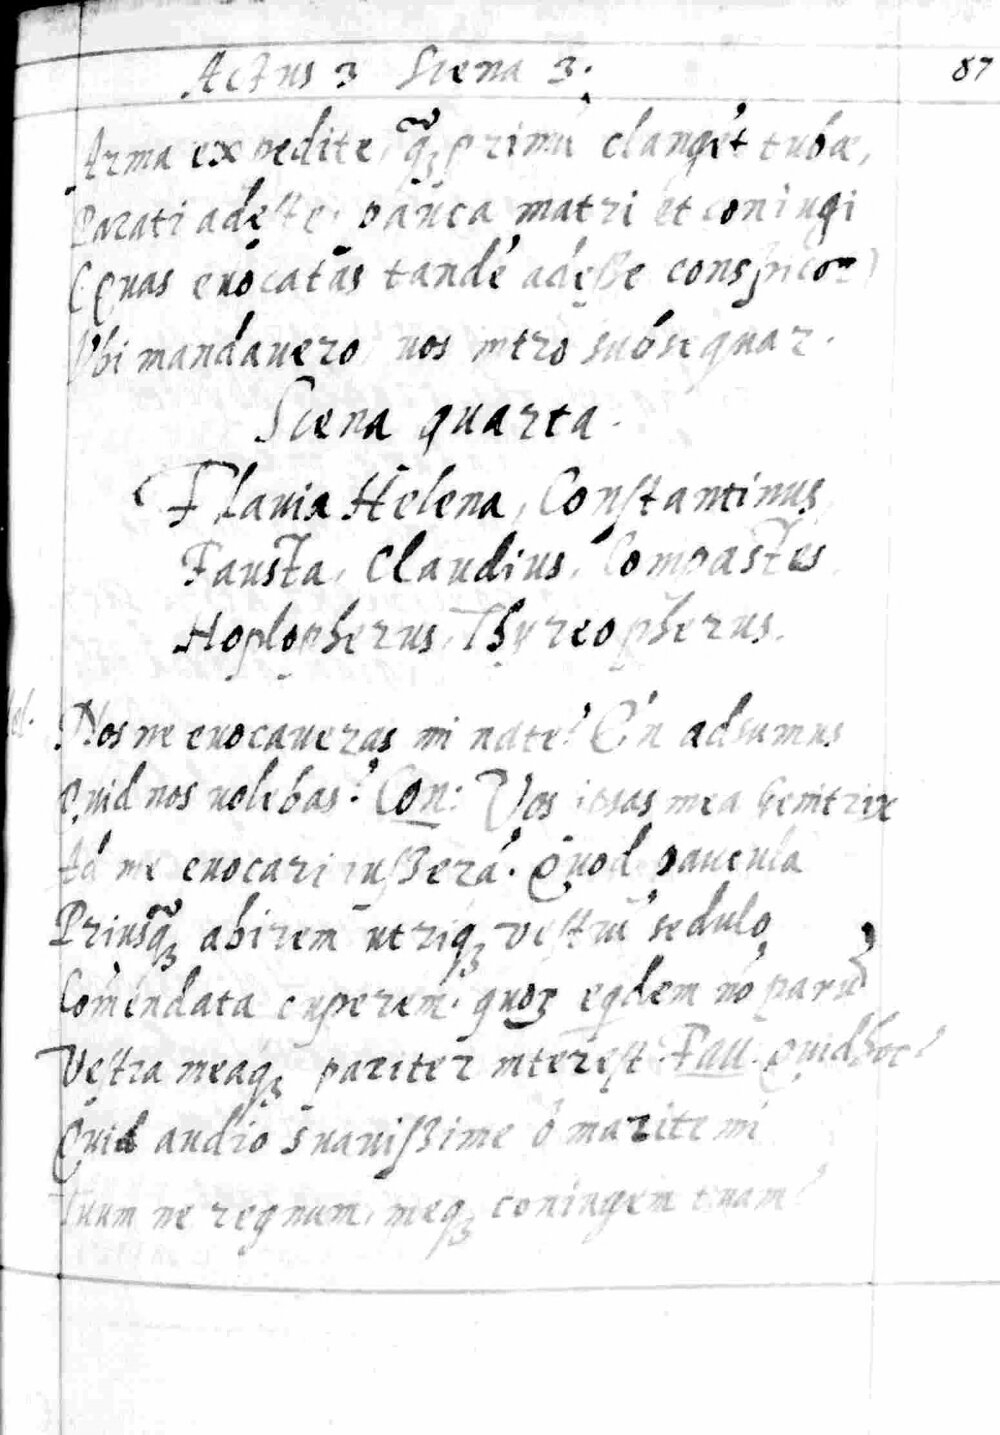 Actus 3 Scena 3. 87
Arma expedite, q̃ꝫ primū clangēt tubæ,
Parati adeste. pauca matri et coniugi
(Quas euocatas tandē adesse conspicor)
Vbi mandauero uos intro subsequar.
Scena quarta.
Flauia Helena, Constantinus,
Fausta, Claudius, Compastes
Hoplopherus, Thyreopherus.
Hel. Nos ne euocaueras mi nate? En adsumus
Quid nos uolebas? Con: Vos ipsas mea Genitrix
Ad me euocari iusserā. Quod paucula
Priusq̃ꝫ abirem utriqꝫ vestrū sedulo
Comendata cuperem. quoꝝ eqdem nō parū
Vestra meaqꝫ pariter interest. Fau. Quid hoc?
Quid audio suauissime ô marite mi
Tuum ne regnum, meqꝫ coniugem tuam?